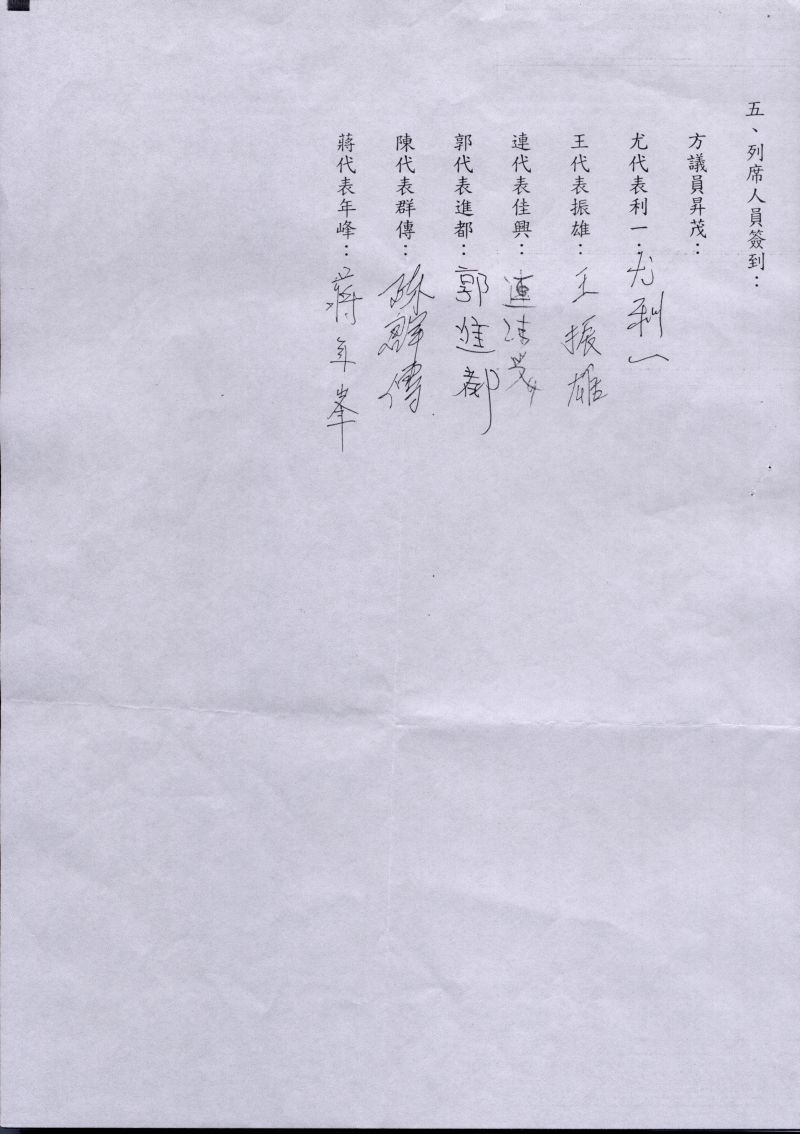 五、列席人員簽到：
方議員昇茂：
尤代表利一：尤利一
王代表振雄：王振雄
連代表佳興：連佳興
郭代表進都：郭進都
陳代表群傳：陳群傳
蔣代表年峰：蔣年峯